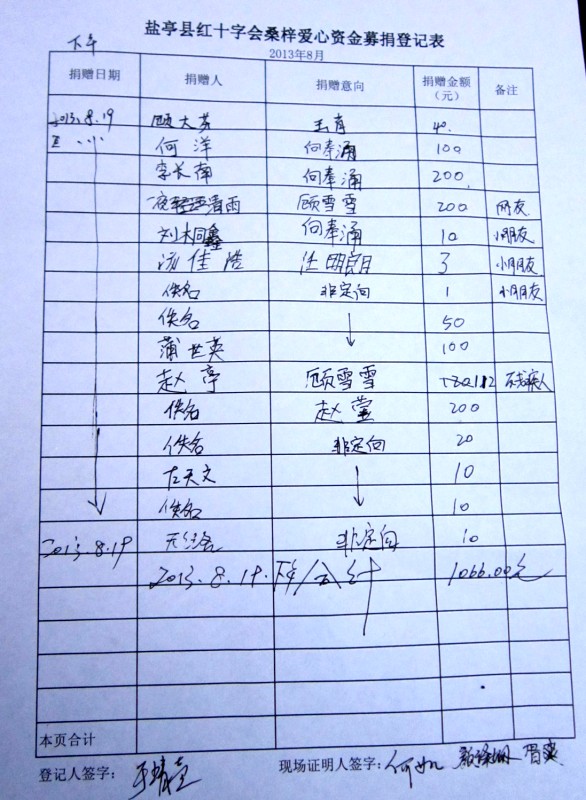 盐亭县红十字会桑梓爱心资金募捐登记表
下午 2013年8月
捐赠日期 捐赠人 捐赠意向 捐赠金额(元) 备注
2013.8.19 顾大芬 40.
何洋 何奉涌 100
李长南 何奉涌 200
雨 顾雪雪 200 网友
刘桐鑫 何奉涌 10 小朋友
游佳浩 任明朗 3 小朋友
佚名 非定向 1 小朋友
佚名 50
蒲世英 100
赵亭 顾雪雪 残疾人
佚名 赵莹 200
佚名 非定向 20
左天文 10
佚名 10
2013.8.19 无名 非定向 10
2013.8.19.下午/合计 1066.00元
本页合计
登记人签字: 现场证明人签字: